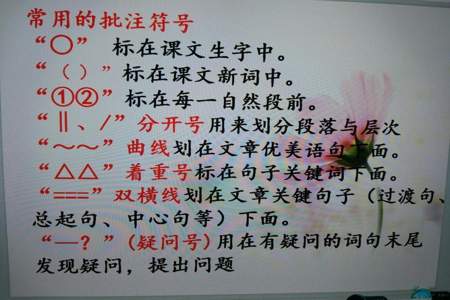 常用的批注符号
“〇” 标在课文生字中。
“（ ）”标在课文新词中。
“①②”标在每一自然段前。
“‖、/”分开号用来划分段落与层次
“～～”曲线划在文章优美语句下面。
“△△”着重号标在句子关键词下面。
“===”双横线划在文章关键句子（过渡句、
总起句、中心句等）下面。
“—？”（疑问号）用在有疑问的词句末尾
发现疑问，提出问题